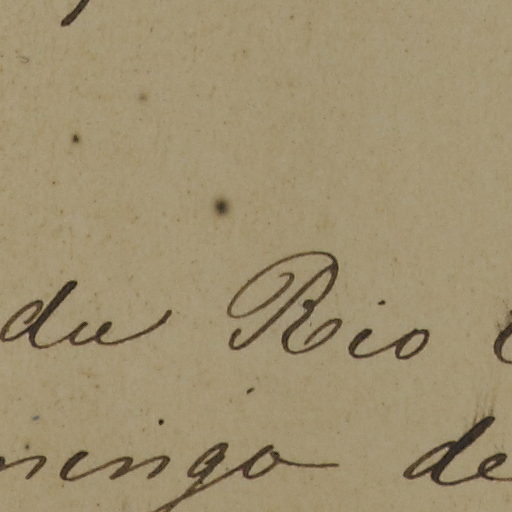 du Rio
mingo de